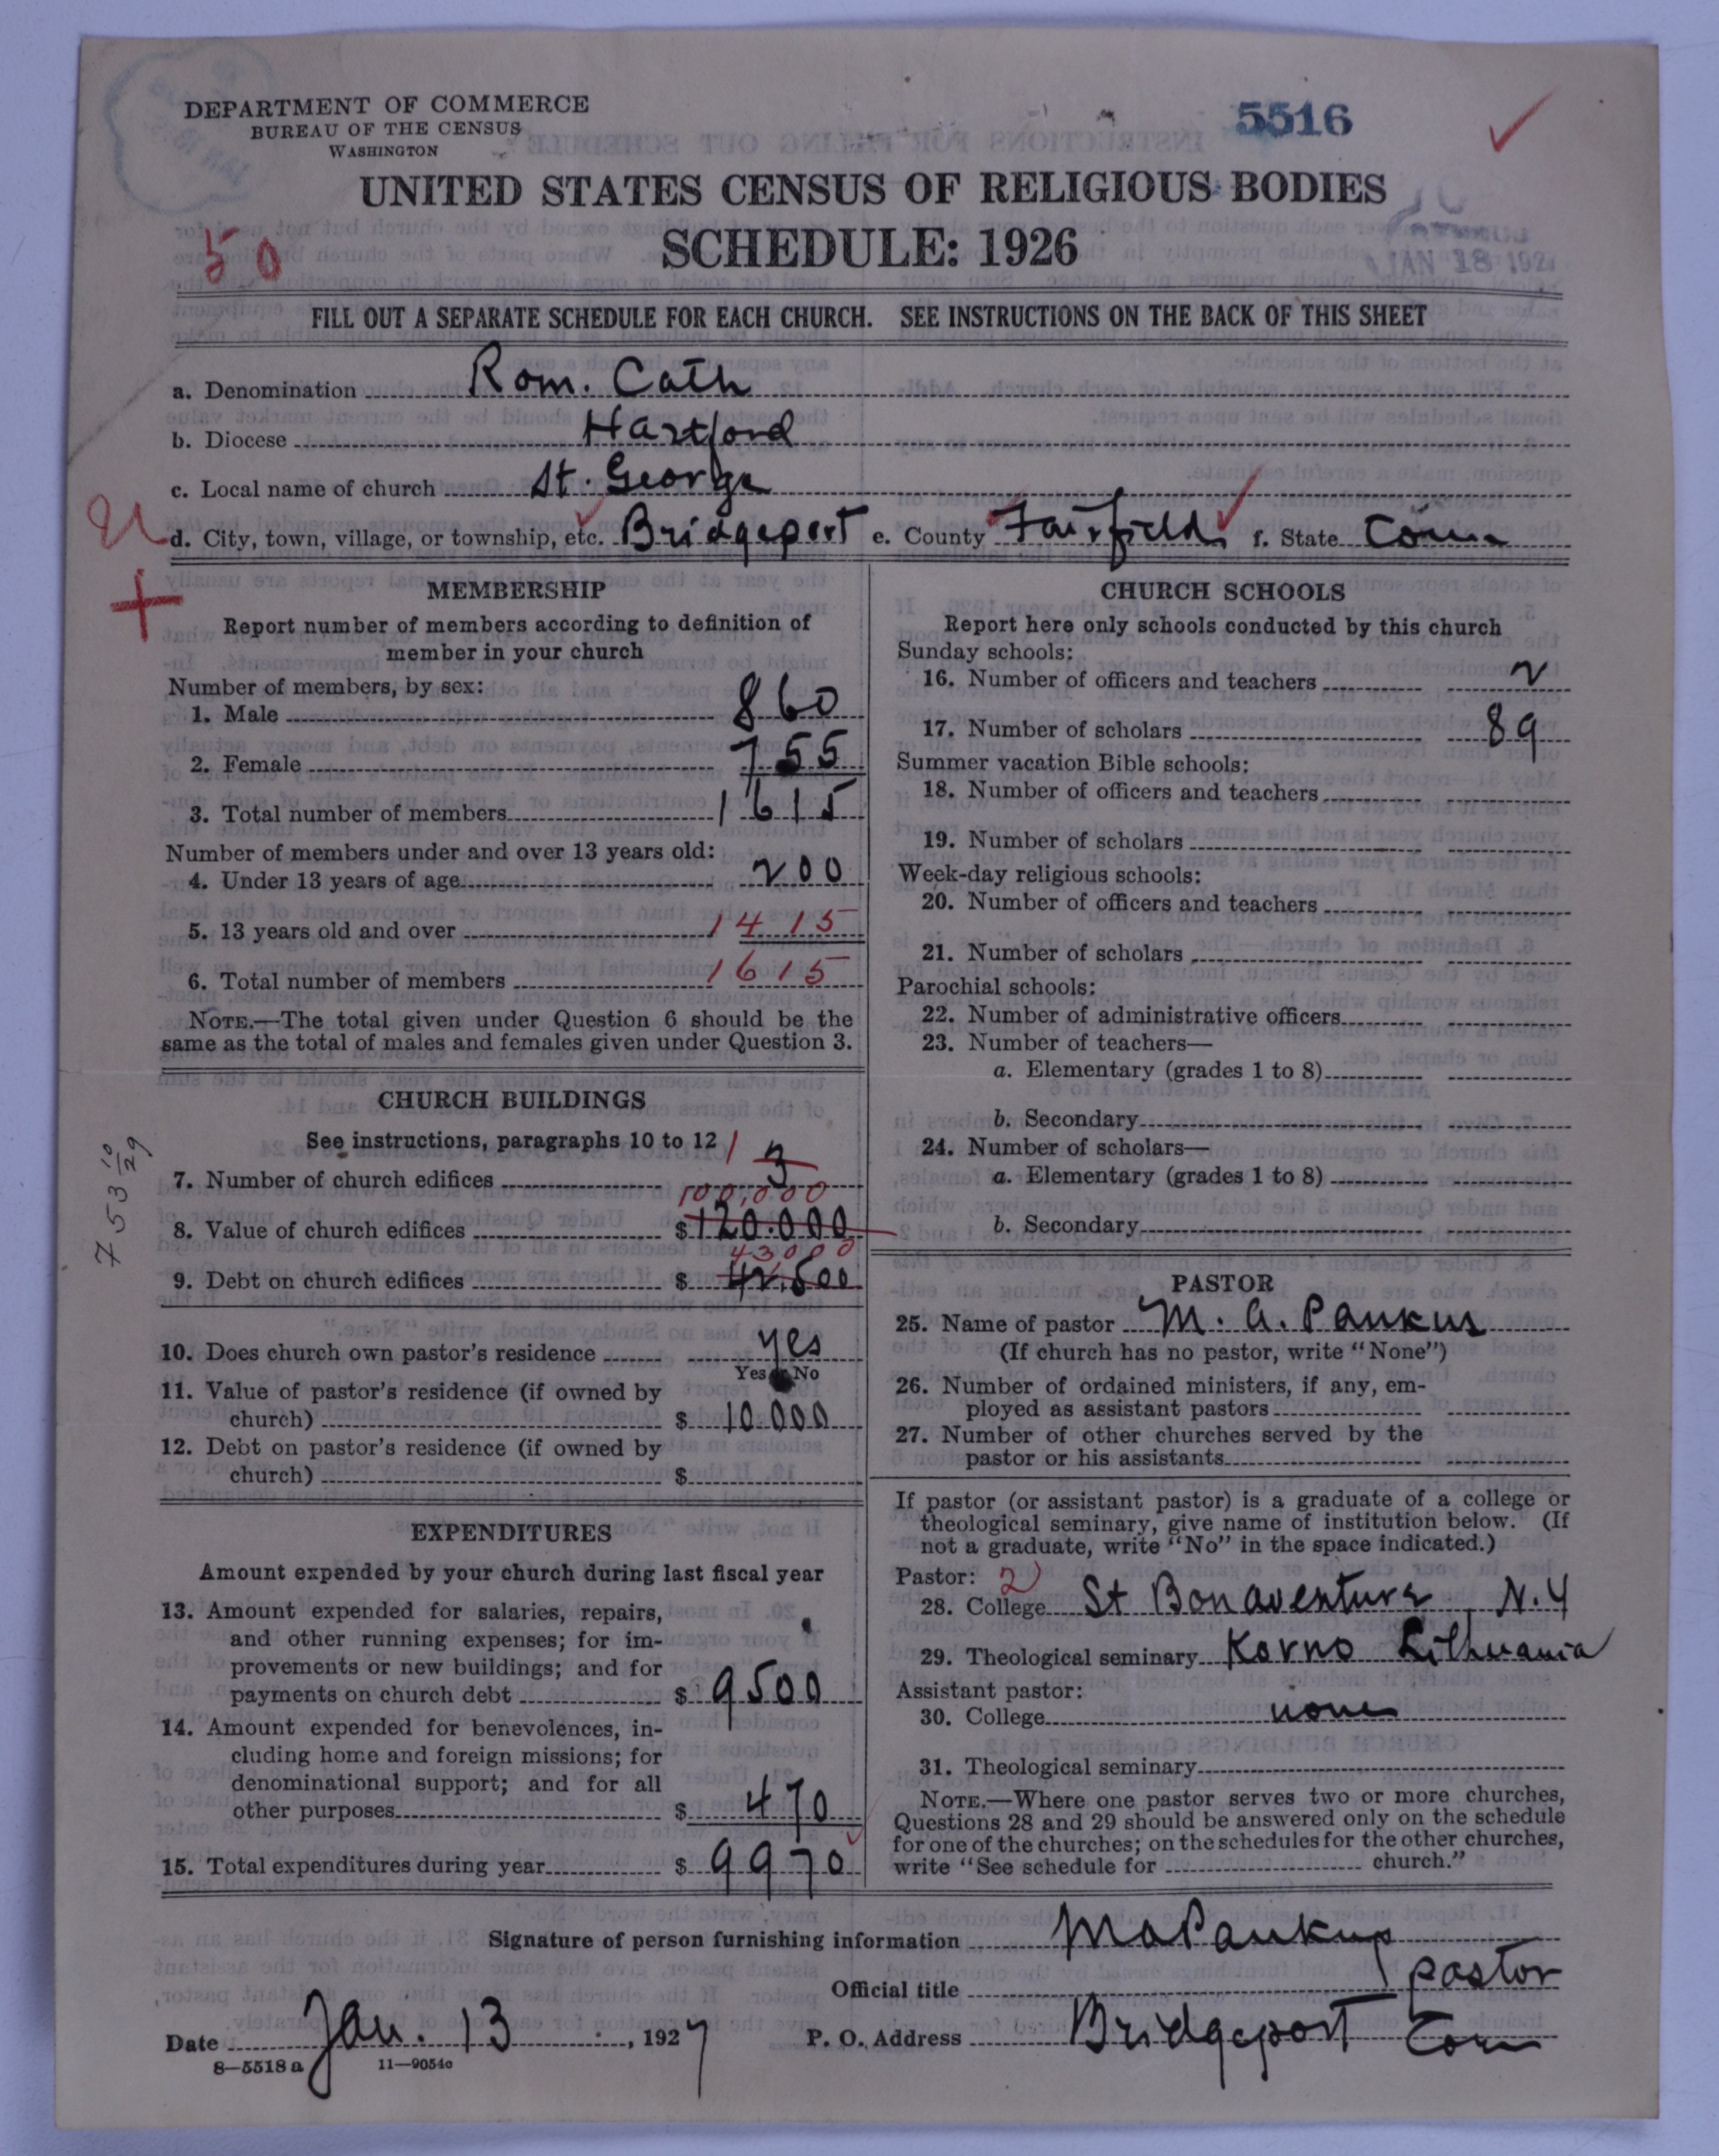 DEPARTMENT OF COMMERCE
BUREAU OF THE CENSUS
WASHINGTON
5516
UNITED STATES CENSUS OF RELIGIOUS BODIES
SCHEDULE: 1926
50
JAN 18 192
FILL OUT A SEPARATE SCHEDULE FOR EACH CHURCH. SEE INSTRUCTIONS ON THE BACK OF THIS SHEET
a. Denomination Rom. Cath
b. Diocese Hartford
c. Local name of church St. George
d. City, town, village, or township, etc. Bridgeport e. County Fairfield f. State Conn
MEMBERSHIP
Report number of members according to definition of
member in your church
Number of members, by sex:
1. Male 860
2. Female 755
3. Total number of members 1615
Number of members under and over 13 years old:
4. Under 13 years of age 200
5. 13 years old and over 1415
6. Total number of members 1615
NOTE.—The total given under Question 6 should be the
same as the total of males and females given under Question 3.
CHURCH BUILDINGS
See instructions, paragraphs 10 to 12
7. Number of church edifices 1 3
100,000
8. Value of church edifices $ 120.000
43000
9. Debt on church edifices $ 42,500
10. Does church own pastor's residence yes
Yes or No
11. Value of pastor's residence (if owned by
church) $ 10.000
12. Debt on pastor's residence (if owned by
church) $
753 10/29
EXPENDITURES
Amount expended by your church during last fiscal year
13. Amount expended for salaries, repairs,
and other running expenses; for im-
provements or new buildings; and for
payments on church debt $ 9500
14. Amount expended for benevolences, in-
cluding home and foreign missions; for
denominational support; and for all
other purposes $ 470
15. Total expenditures during year $ 9970
CHURCH SCHOOLS
Report here only schools conducted by this church
Sunday schools:
16. Number of officers and teachers 2
17. Number of scholars 89
Summer vacation Bible schools:
18. Number of officers and teachers
19. Number of scholars
Week-day religious schools:
20. Number of officers and teachers
21. Number of scholars
Parochial schools:
22. Number of administrative officers
23. Number of teachers—
a. Elementary (grades 1 to 8)
b. Secondary
24. Number of scholars—
a. Elementary (grades 1 to 8)
b. Secondary
PASTOR
25. Name of pastor M. A. Pankus
(If church has no pastor, write "None")
26. Number of ordained ministers, if any, em-
ployed as assistant pastors
27. Number of other churches served by the
pastor or his assistants
If pastor (or assistant pastor) is a graduate of a college or
theological seminary, give name of institution below. (If
not a graduate, write "No" in the space indicated.)
Pastor: 2
28. College St Bonaventure N.Y
29. Theological seminary Kovno Lithuania
Assistant pastor:
30. College none
31. Theological seminary
NOTE.—Where one pastor serves two or more churches,
Questions 28 and 29 should be answered only on the schedule
for one of the churches; on the schedules for the other churches,
write "See schedule for church."
Signature of person furnishing information MAPankus
Official title pastor
Date Jan. 13, 1927 P. O. Address Bridgeport Conn
8—5518a 11—9054c